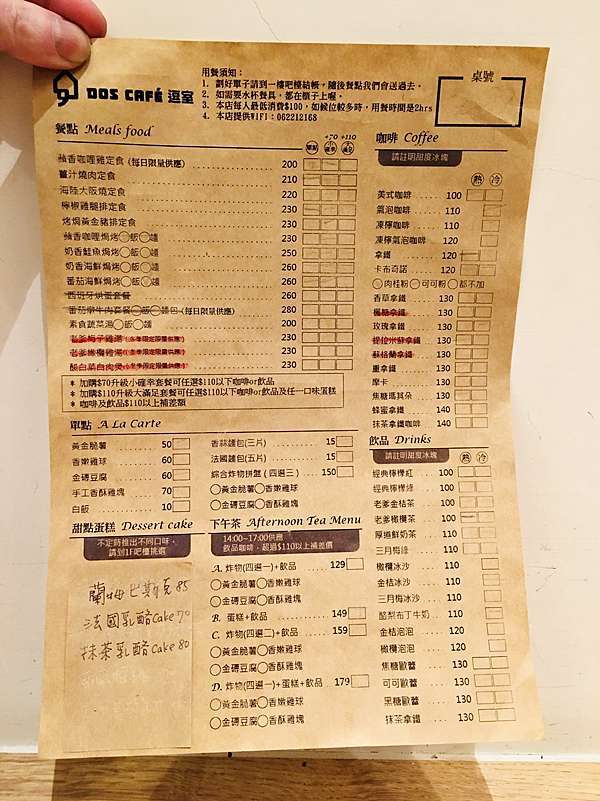 DOS CAFÉ 逗室
用餐須知：
1. 劃好單子請到一樓吧檯結帳，隨後餐點我們會送過去。
2. 如需要水杯餐具，都在櫃子上喔。
3. 本店每人最低消費$100，如候位較多時，用餐時間是2hrs
4. 本店提供WIFI：062212168
桌號
餐點 Meals food
+70 +110
椰香咖哩雞定食 (每日限量供應) 200
薑汁燒肉定食 210
海陸大阪燒定食 220
檸檬雞腿排定食 230
烤焗黃金豬排定食 230
椰香咖哩焗烤○飯○麵 230
奶香鮭魚焗烤○飯○麵 250
奶香海鮮焗烤○飯○麵 260
番茄海鮮焗烤○飯○麵 260
西班牙烘蛋套餐 260
番茄燉牛肉套餐○飯○麵包 (每日限量供應) 280
素食蔬菜湯○飯○麵 200
老爹梅子雞湯 (冬季限定限量供應) 230
老爹橄欖雞湯 (冬季限定限量供應) 230
酸白菜白肉煲 (冬季限定限量供應) 230
* 加購$70升級小確幸套餐可任選$110以下咖啡or飲品
* 加購$110升級大滿足套餐可任選$110以下咖啡or飲品及任一口味蛋糕
* 咖啡及飲品$110以上補差額
單點 A La Carte
黃金脆薯 50
香嫩雞球 60
金磚豆腐 60
手工香酥雞塊 70
白飯 10
香蒜麵包(三片) 15
法國麵包(五片) 15
綜合炸物拼盤 (四選三) 150
○黃金脆薯○香嫩雞球
○金磚豆腐○香酥雞塊
甜點蛋糕 Dessert cake
不定時推出不同口味，
請到1F吧檯挑選
蘭姆巴斯克 85
法國乳酪Cake 70
抹茶乳酪Cake 80
下午茶 Afternoon Tea Menu
14:00~17:00供應
飲品咖啡，超過$110以上補差價
A. 炸物(四選一)+飲品 129
○黃金脆薯○香嫩雞球
○金磚豆腐○香酥雞塊
B. 蛋糕+飲品 149
C. 炸物(四選二)+飲品 159
○黃金脆薯○香嫩雞球
○金磚豆腐○香酥雞塊
D. 炸物(四選一)+蛋糕+飲品 179
○黃金脆薯○香嫩雞球
○金磚豆腐○香酥雞塊
咖啡 Coffee
請註明甜度冰塊
熱 冷
美式咖啡 100
氣泡咖啡 110
凍檸咖啡 110
凍檸氣泡咖啡 120
拿鐵 120
卡布奇諾 120
○肉桂粉○可可粉○都不加
香草拿鐵 130
楓糖拿鐵 130
玫瑰拿鐵 130
提拉米蘇拿鐵 130
蘇格蘭拿鐵 130
重拿鐵 130
摩卡 130
焦糖瑪其朵 130
蜂蜜拿鐵 140
抹茶拿鐵咖啡 140
飲品 Drinks
請註明甜度冰塊
熱 冷
經典檸檬紅 100
經典檸檬綠 100
老爹金桔茶 100
老爹橄欖茶 100
厚道鮮奶茶 110
三月梅綠 110
橄欖冰沙 110
金桔冰沙 110
三月梅冰沙 110
酪梨布丁牛奶 110
金桔泡泡 120
橄欖泡泡 120
焦糖歐蕾 130
可可歐蕾 130
黑糖歐蕾 130
抹茶拿鐵 130